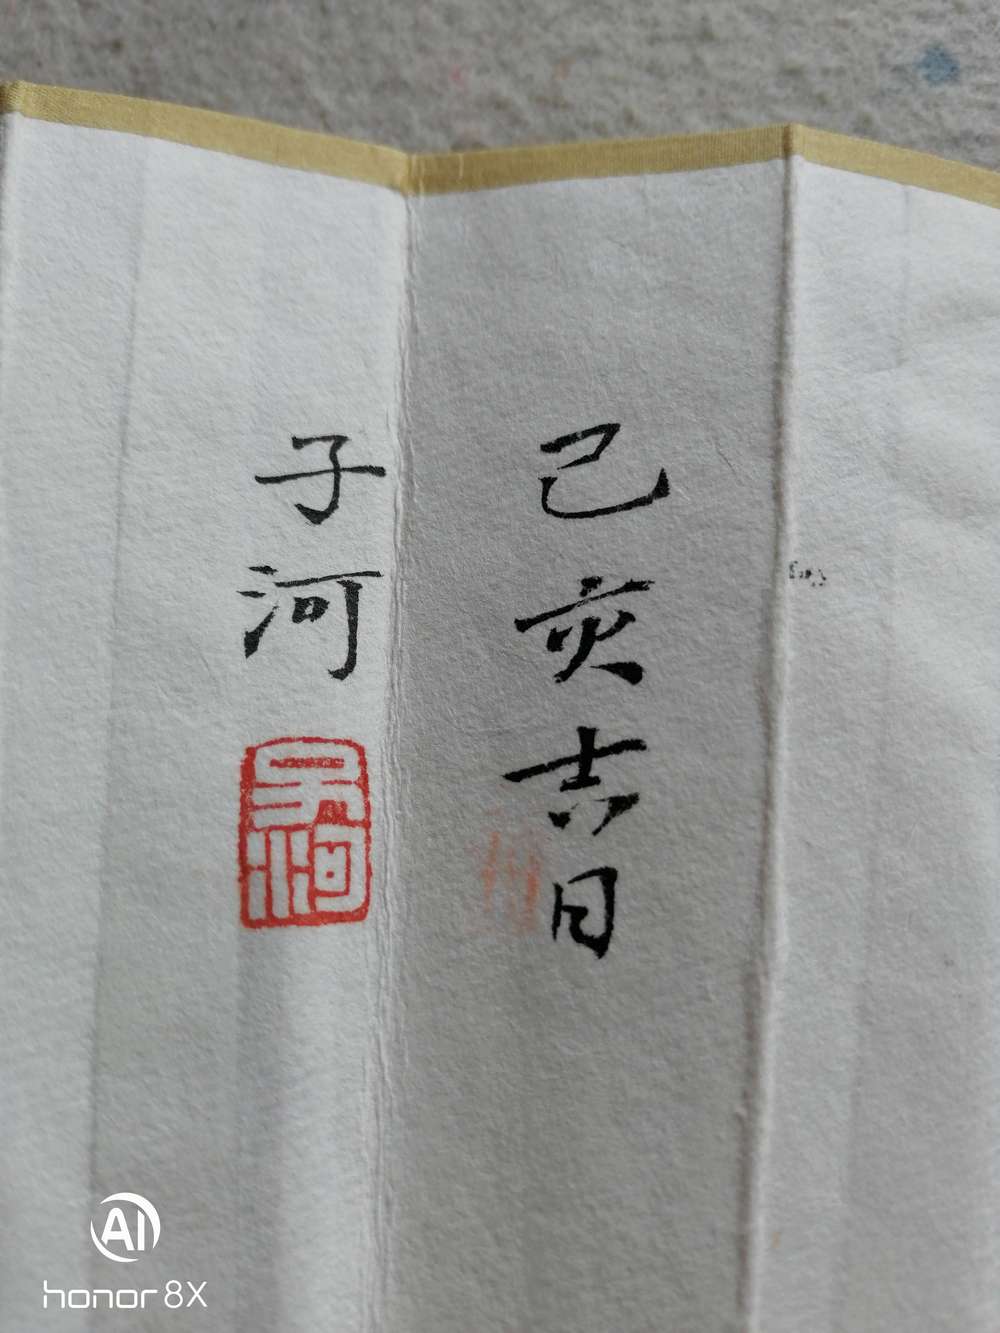 己亥吉日
子河
吴河
AI
honor 8X